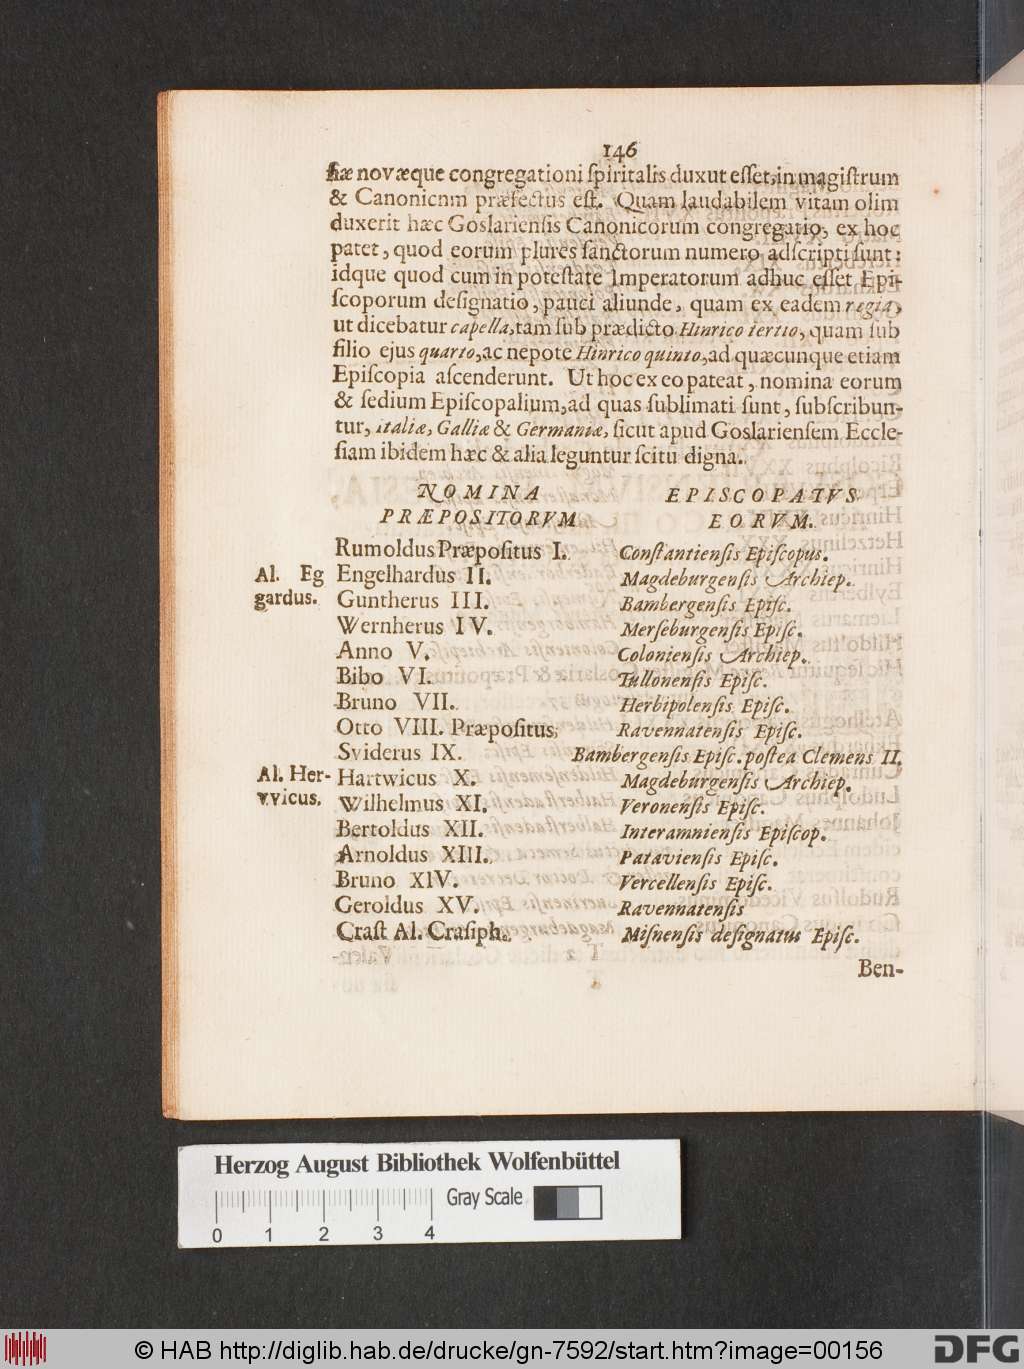 146
hæ novæque congregationi ſpiritalis duxut eſſet, in magiſtrum
& Canonicnm præfectus eſt. Quam laudabilem vitam olim
duxerit hæc Goslarienſis Canonicorum congregatio, ex hoc
patet, quod eorum plures ſanctorum numero adſcripti ſunt:
idque quod cum in poteſtate Imperatorum adhuc eſſet Epi-
ſcoporum deſignatio, pauci aliunde, quam ex eadem regia,
ut dicebatur capella, tam ſub prædicto Hinrico tertio, quam ſub
filio ejus quarto, ac nepote Hinrico quinto, ad quæcunque etiam
Epiſcopia aſcenderunt. Ut hoc ex eo pateat, nomina eorum
& ſedium Epiſcopalium, ad quas ſublimati ſunt, ſubſcribun-
tur, italiæ, Galliæ & Germaniæ, ſicut apud Goslarienſem Eccle-
ſiam ibidem hæc & alia leguntur ſcitu digna.
NOMINA EPISCOPATVS
PRÆPOSITORVM EORVM.
Rumoldus Præpoſitus I. Conſtantienſis Epiſcopus.
Al. Eg Engelhardus II. Magdeburgenſis Archiep.
gardus. Guntherus III. Bambergenſis Epiſc.
Wernherus IV. Merſeburgenſis Epiſc.
Anno V. Colonienſis Archiep.
Bibo VI. Tullonenſis Epiſc.
Bruno VII. Herbipolenſis Epiſc.
Otto VIII. Præpoſitus, Ravennatenſis Epiſc.
Sviderus IX. Bambergenſis Epiſc. poſtea Clemens II.
Al. Her- Hartwicus X. Magdeburgenſis Archiep.
vvicus. Wilhelmus XI. Veronenſis Epiſc.
Bertoldus XII. Interamnienſis Epiſcop.
Arnoldus XIII. Patavienſis Epiſc.
Bruno XIV. Vercellenſis Epiſc.
Geroldus XV. Ravennatenſis
Craſt Al. Craſiph. Miſnenſis deſignatus Epiſc.
Ben-
Herzog August Bibliothek Wolfenbüttel
Gray Scale
0 1 2 3 4
© HAB http://diglib.hab.de/drucke/gn-7592/start.htm?image=00156
DFG